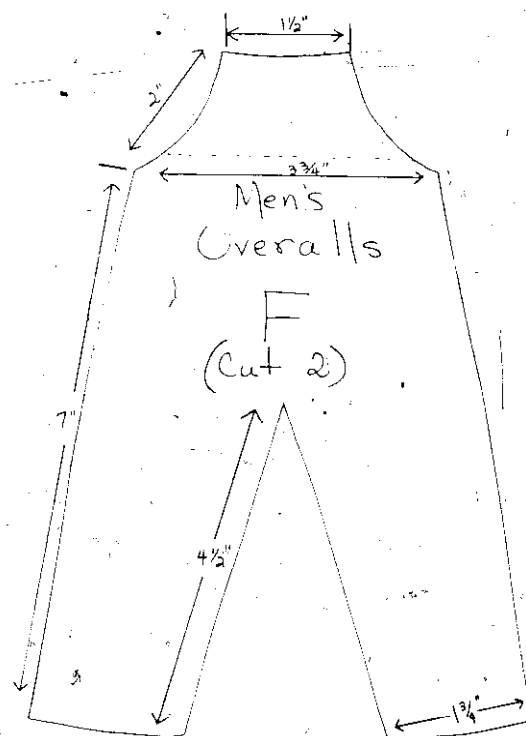 1½"
2"
3¾"
Men's
Overalls
F
(Cut 2)
7"
4½"
1¾"